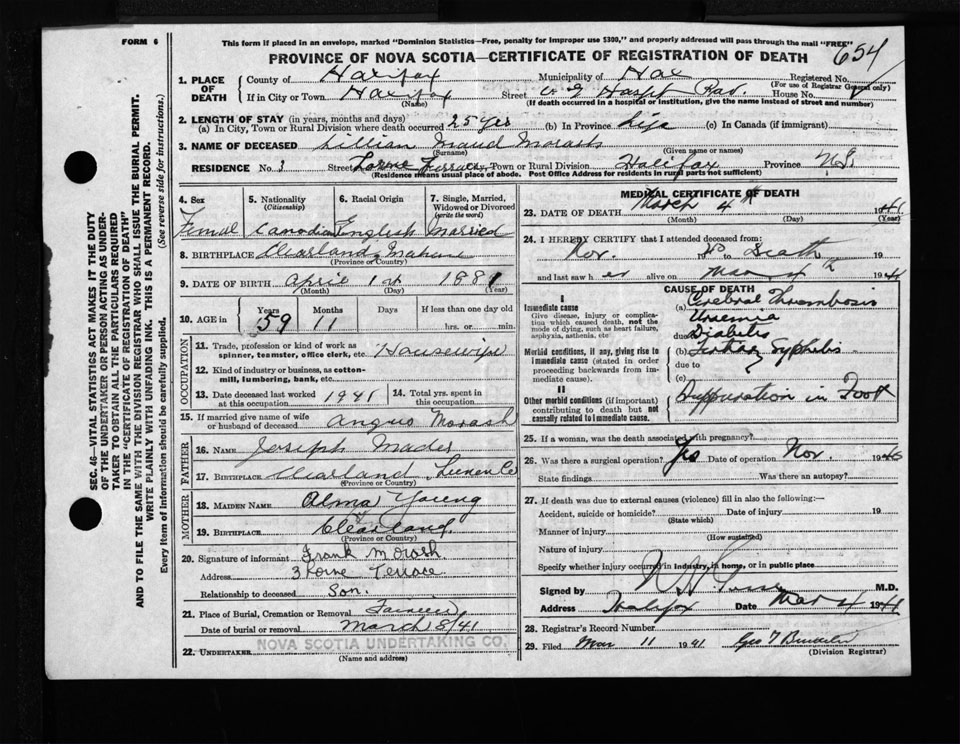 FORM 6
This form if placed in an envelope, marked "Dominion Statistics—Free, penalty for improper use $300," and properly addressed will pass through the mail "FREE"
PROVINCE OF NOVA SCOTIA—CERTIFICATE OF REGISTRATION OF DEATH
654
1. PLACE OF DEATH
County of Halifax Municipality of Hax Registered No.
(For use of Registrar General only)
If in City or Town Halifax Street Hospt House No.
(Name) (If death occurred in a hospital or institution, give the name instead of street and number)
2. LENGTH OF STAY (in years, months and days)
(a) In City, Town or Rural Division where death occurred 25 yrs (b) In Province Life (c) In Canada (if immigrant)
3. NAME OF DECEASED Lillian Maud Morash
(Surname) (Given name or names)
RESIDENCE No. 3 Street Lorne Terrace City, Town or Rural Division Halifax Province N.S.
(Residence means usual place of abode. Post Office Address for residents in rural parts not sufficient)
4. Sex 5. Nationality (Citizenship) 6. Racial Origin 7. Single, Married, Widowed or Divorced (write the word)
Femal Canadian English Married
8. BIRTHPLACE Clearland Mahone
(Province or Country)
9. DATE OF BIRTH April 1st 1881
(Month) (Day) (Year)
10. AGE in Years Months Days If less than one day old
59 11 hrs. or min.
OCCUPATION
11. Trade, profession or kind of work as spinner, teamster, office clerk, etc. Housewife
12. Kind of industry or business, as cotton-mill, lumbering, bank, etc.
13. Date deceased last worked at this occupation 1941 14. Total yrs. spent in this occupation
15. If married give name of wife or husband of deceased Angus Morash
FATHER
16. NAME Joseph Mader
17. BIRTHPLACE Clearland Lunen Co
(Province or Country)
MOTHER
18. MAIDEN NAME Alma Young
19. BIRTHPLACE Clearland
(Province or Country)
20. Signature of informant Frank Morash
Address 3 Lorne Terrace
Relationship to deceased Son.
21. Place of Burial, Cremation or Removal Fairview
Date of burial or removal March 8/41
22. UNDERTAKER NOVA SCOTIA UNDERTAKING CO.
(Name and address)
MEDICAL CERTIFICATE OF DEATH
23. DATE OF DEATH March 4th 1941
(Month) (Day) (Year)
24. I HEREBY CERTIFY that I attended deceased from
Nov. to Death
and last saw her alive on Mar 4th 1941
CAUSE OF DEATH
I
Immediate cause
Give disease, injury or complication which caused death, not the mode of dying, such as heart failure, asphyxia, asthenia, etc
(a) Cerebral Thrombosis
Uraemia
due to Diabetes
Morbid conditions, if any, giving rise to immediate cause (stated in order proceeding backwards from immediate cause).
(b) Tertiary Syphilis
due to
(c)
II
Other morbid conditions (if important) contributing to death but not causally related to immediate cause.
Suppuration in Foot
25. If a woman, was the death associated with pregnancy?
26. Was there a surgical operation? Yes Date of operation Nov. 1940
State findings Was there an autopsy?
27. If death was due to external causes (violence) fill in also the following:—
Accident, suicide or homicide? Date of injury 19
(State which)
Manner of injury
(How sustained)
Nature of injury
Specify whether injury occurred in industry, in home, or in public place
Signed by M.D.
Address Halifax Date Mar 4 1941
28. Registrar's Record Number
29. Filed Mar 11 1941 Geo
(Division Registrar)
SEC. 46—VITAL STATISTICS ACT MAKES IT THE DUTY
OF THE UNDERTAKER OR PERSON ACTING AS UNDER-
TAKER TO OBTAIN ALL THE PARTICULARS REQUIRED
IN THE "CERTIFICATE OF REGISTRATION OF DEATH"
AND TO FILE THE SAME WITH THE DIVISION REGISTRAR WHO SHALL ISSUE THE BURIAL PERMIT.
WRITE PLAINLY WITH UNFADING INK. THIS IS A PERMANENT RECORD.
Every item of information should be carefully supplied. (See reverse side for instructions.)